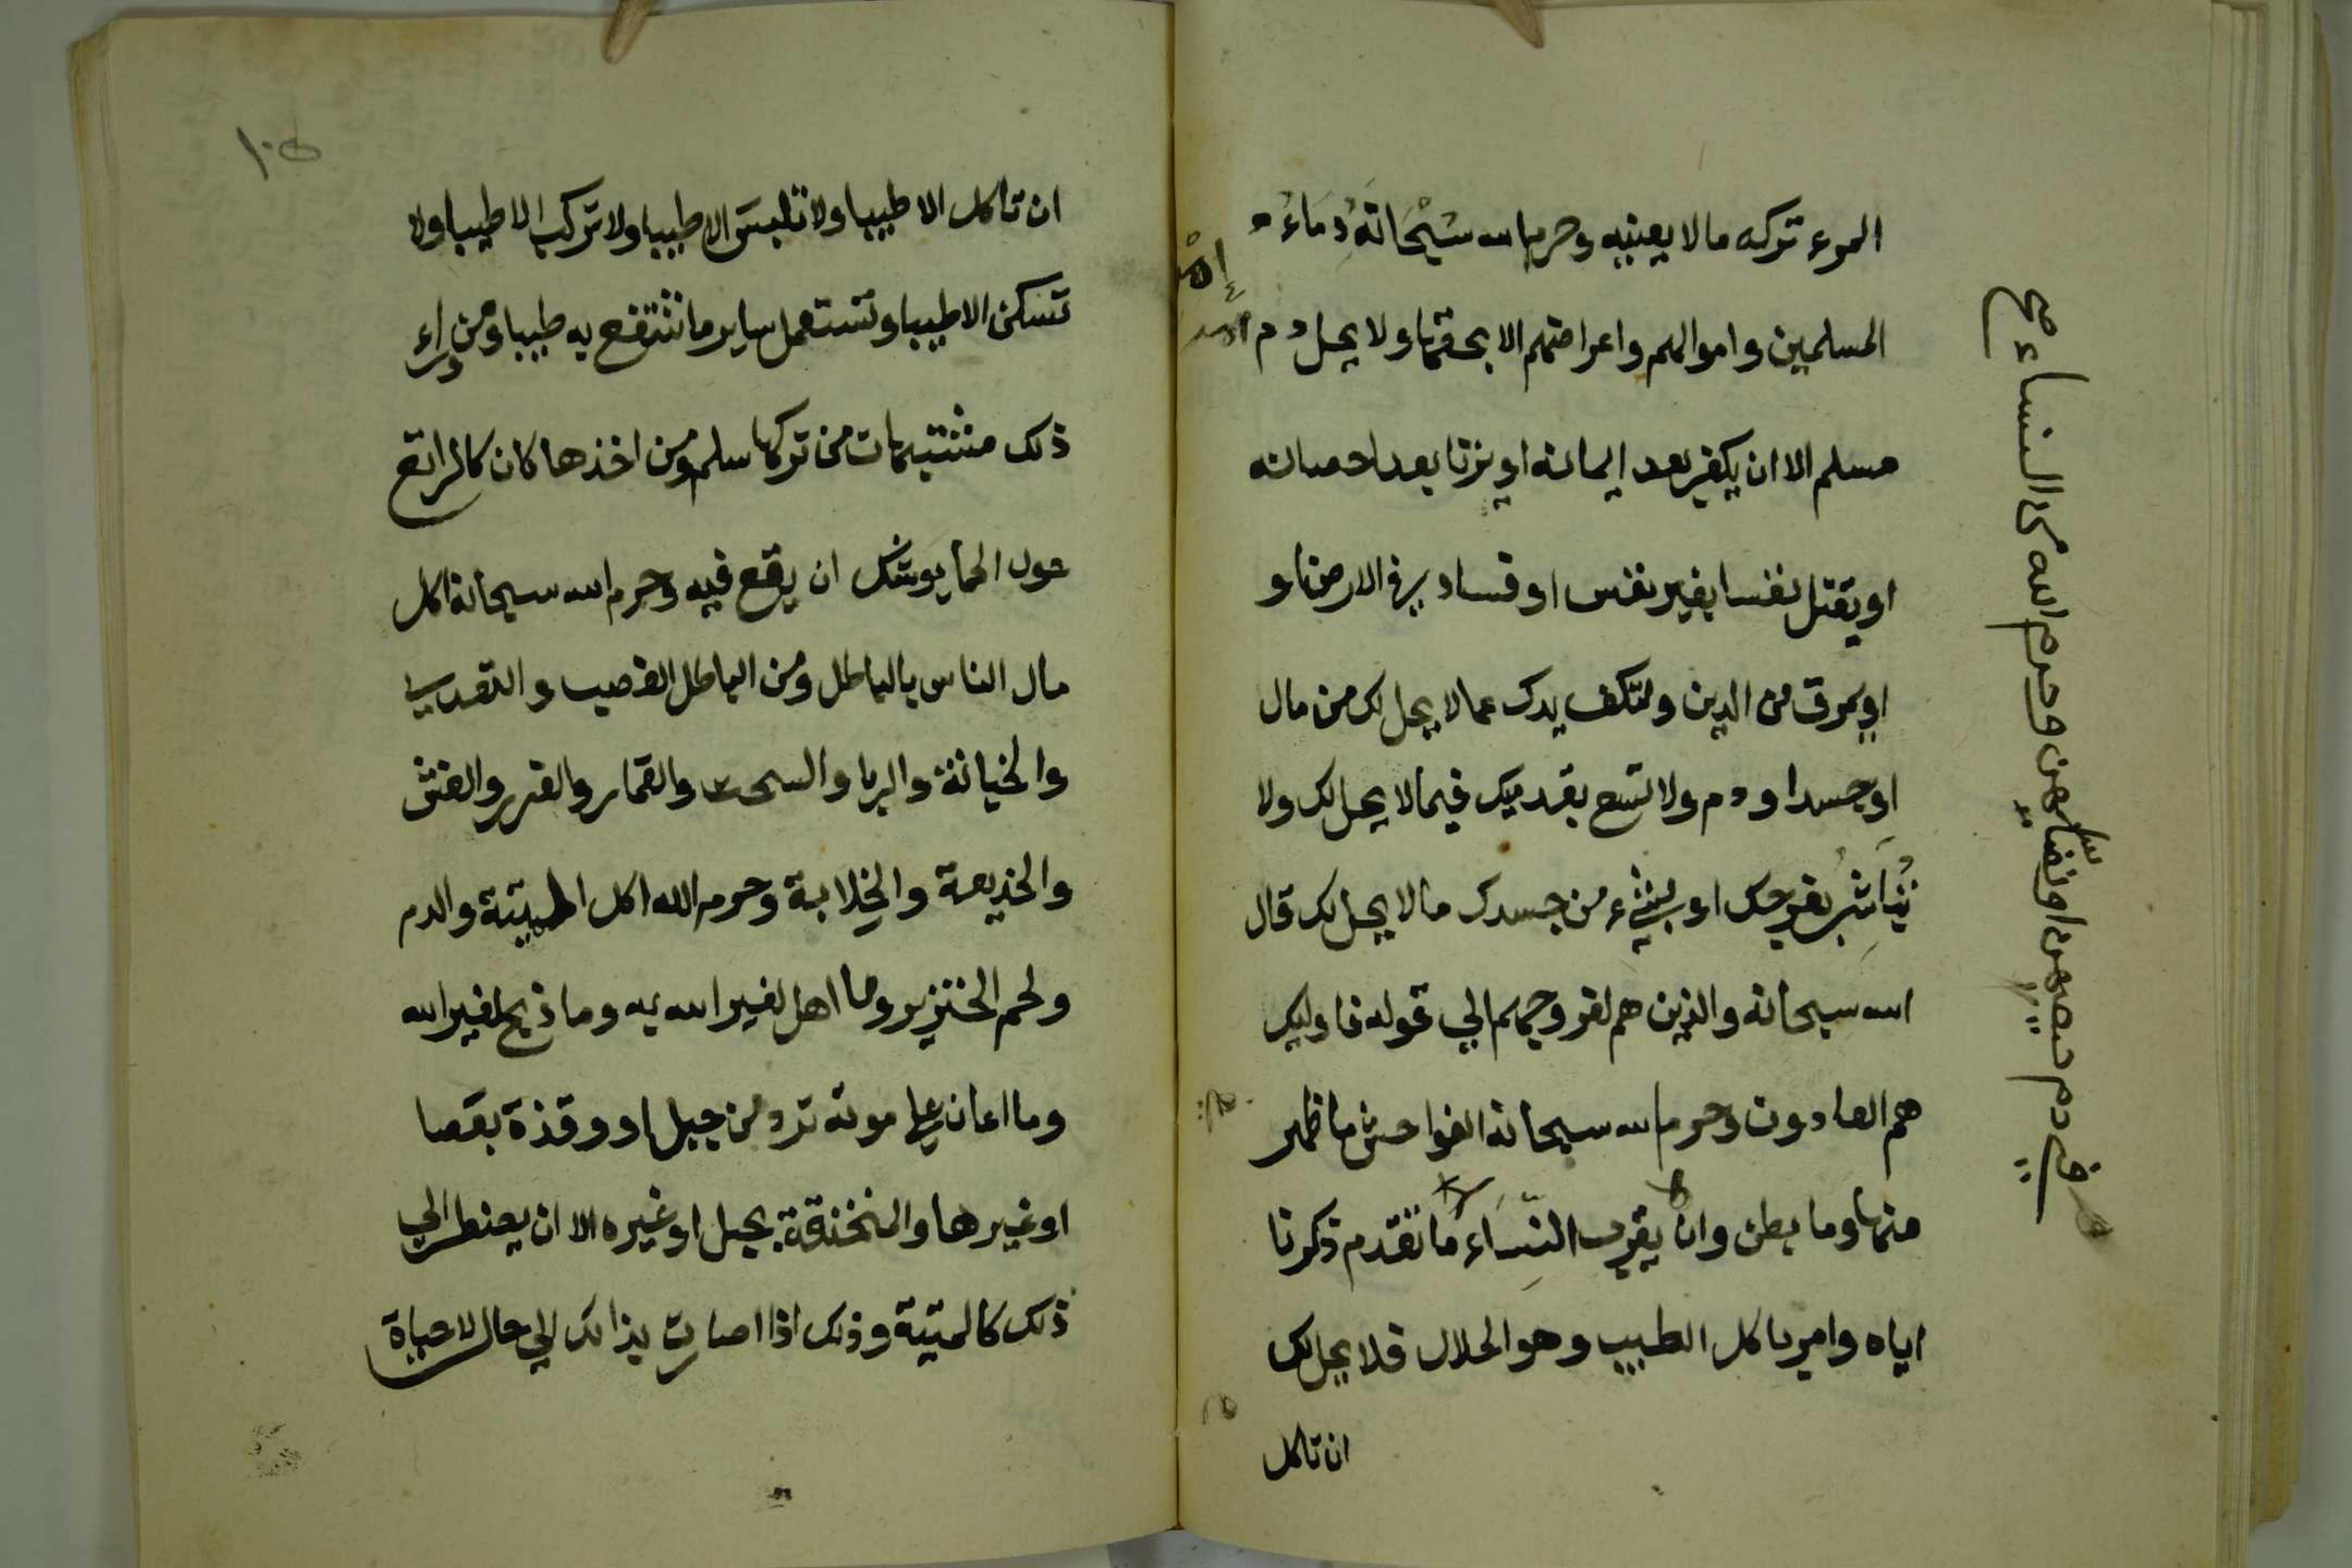 المرء تركه ما لا يعنيه وحرم الله سبحانه دماء
المسلمين واموالهم واعراضهم الا بحقها ولا يحل دم
مسلم الا ان يكفر بعد ايمانه او يزنا بعد احصانه
او يقتل نفسا بغير نفس او فساد في الارض او
او يمرق من الدين ولتكف يدك عما لا يحل لك من مال
او جسد او دم ولا تسع بقدميك فيما لا يحل لك ولا
تُبَاشِرْ بفرجك او بشيء من جسدك ما لا يحل لك قال
الله سبحانه والذين هم لفروجهم الي قوله فاوليك
هم العادون وحرم الله سبحانه الفواحش ما ظهر
منها وما بطن وان يقرب النِّسَاء ما تقدم ذكرنا
اياه وامر باكل الطيب وهو الحلال فلا يحل لك
ان تاكل
وحرم الله من النساء
في دم حيضهن او نفاسهن
١٠٥
ان تاكل الا طيبا ولا تلبس الا طيبا ولا تركب الا طيبا ولا
تسكن الا طيبا وتستعمل ساير ما تنتفع به طيبا ومن وراء
ذلك مشتبهات من تركها سلم ومن اخذها كان كالراتع
حول الحما يوشك ان يقع فيه وحرم الله سبحانه اكل
مال الناس بالباطل ومن الباطل الغصب والتعدي
والخيانة والربا والسحت والقمار والغرر والغش
والخديعة والخلابة وحرم الله اكل الميتة والدم
ولحم الخنزير وما اهل لغير الله به وما ذبح لغير الله
وما اعان علي موته ترد من جبل او وقذة بعصا
او غيرها والمنخنقة بحبل او غيره الا ان يضطر الي
ذلك كالميتة وذلك اذا صارت بذالك الي حال لا حياة